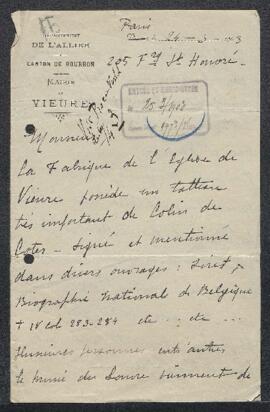 Paris
DÉPARTEMENT
DE L'ALLIER
24 - 3 - 03
CANTON DE BOURBON
205 Fg St Honoré -
MAIRIE
DE
VIEURE
25/3/1903
Monsieur
La Fabrique de l'Eglise de
Vieure possède un tableau
très important de Colin de
Coter - Signé et mentionné
dans divers ouvrages : Siret,
Biographie National de Belgique
t IV col 283-284 etc - etc -
Plusieurs personnes entr'autres
le musée du Louvre viennent de